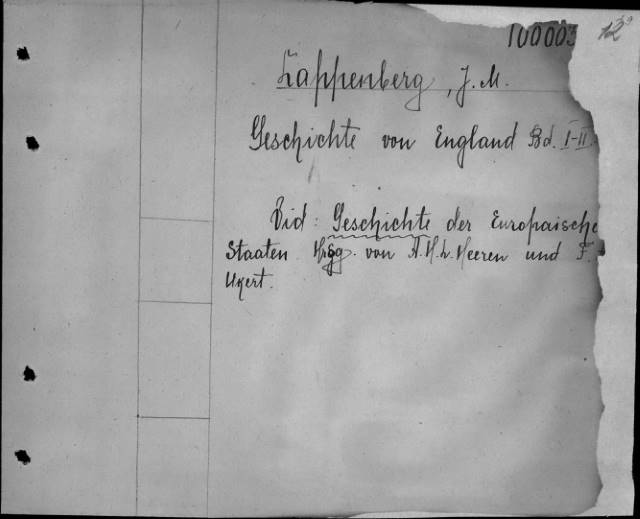 100003
Lappenberg, J. M.
Geschichte von England Bd. I-II.
Vid: Geschichte der Europäische
Staaten Hrsgg. von A. H. L. Heeren und F.
Ukert.